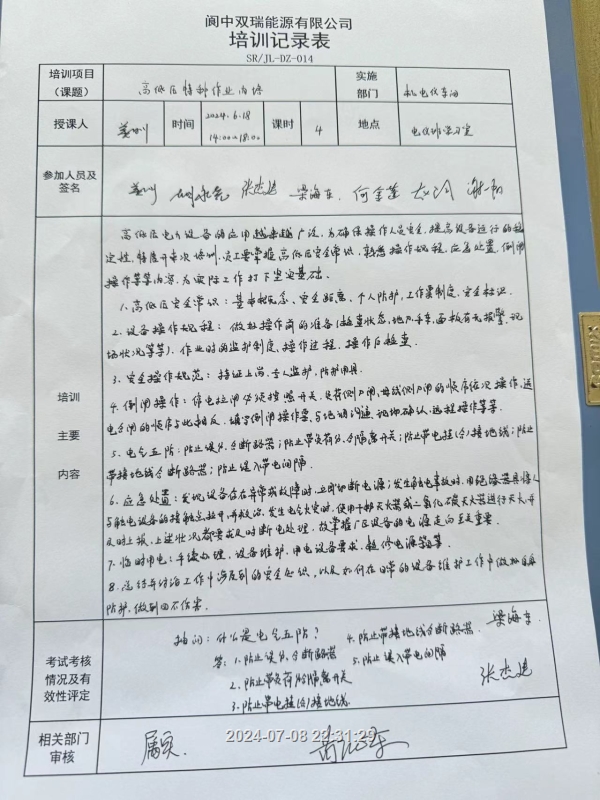 阆中双瑞能源有限公司
培训记录表
SR/JL-DZ-014
培训项目（课题） 高低压特种作业内培 实施部门 机电仪车间
授课人 姜明 时间 2024.6.18 14:00-18:00 课时 4 地点 电仪班学习室
参加人员及签名 姜明 张杰廷 梁海东 何金莲
培训主要内容
高低压电力设备的应用越来越广泛，为确保操作人员安全，提高设备运行的稳
定性，特展开本次培训，员工要掌握高低压安全常识，熟悉操作规程，应急处置，倒闸
操作等等内容，为实际工作打下坚实基础。
1.高低压安全常识：基本概念、安全距离、个人防护，工作票制度，安全标识。
2.设备操作规程：做好操作前的准备（检查状态，地刀，手车，面板有无报警，现
场状况等等），作业时的监护制度，操作过程，操作后检查。
3.安全操作规范：持证上岗，专人监护，防护用具。
4.倒闸操作：停电拉闸必须按照开关，负荷侧刀闸，母线侧刀闸的顺序依次操作，送
电合闸的顺序与此相反，填写倒闸操作票，与地调沟通，现场确认，远程操作等等。
5.电气五防：防止误分、合断路器；防止带负荷分、合隔离开关；防止带电挂（合）接地线；防止
带接地线合断路器；防止误入带电间隔。
6.应急处置：发现设备存在异常或故障时，立即切断电源；发生触电事故时，用绝缘器具将人
与触电设备的接触点拉开，并救治，发生电气火灾时，使用干粉灭火器或二氧化碳灭火器进行灭火，并
及时上报，上述状况都要求及时断电处理，故掌握厂区设备的电源走向至关重要。
7.临时用电：手续办理，设备维护，用电设备要求，检修电源等等。
8.总结与讨论工作中涉及到的安全知识，以及如何在日常的设备维护工作中做好自身
防护，做到四不伤害。
考试考核情况及有效性评定
抽问：什么是电气五防？ 梁海东
答：1.防止误分、合断路器
2.防止带负荷分、合隔离开关
3.防止带电挂（合）接地线
4.防止带接地线合断路器
5.防止误入带电间隔
张杰廷
相关部门审核 属实.
2024-07-08 22:31:29